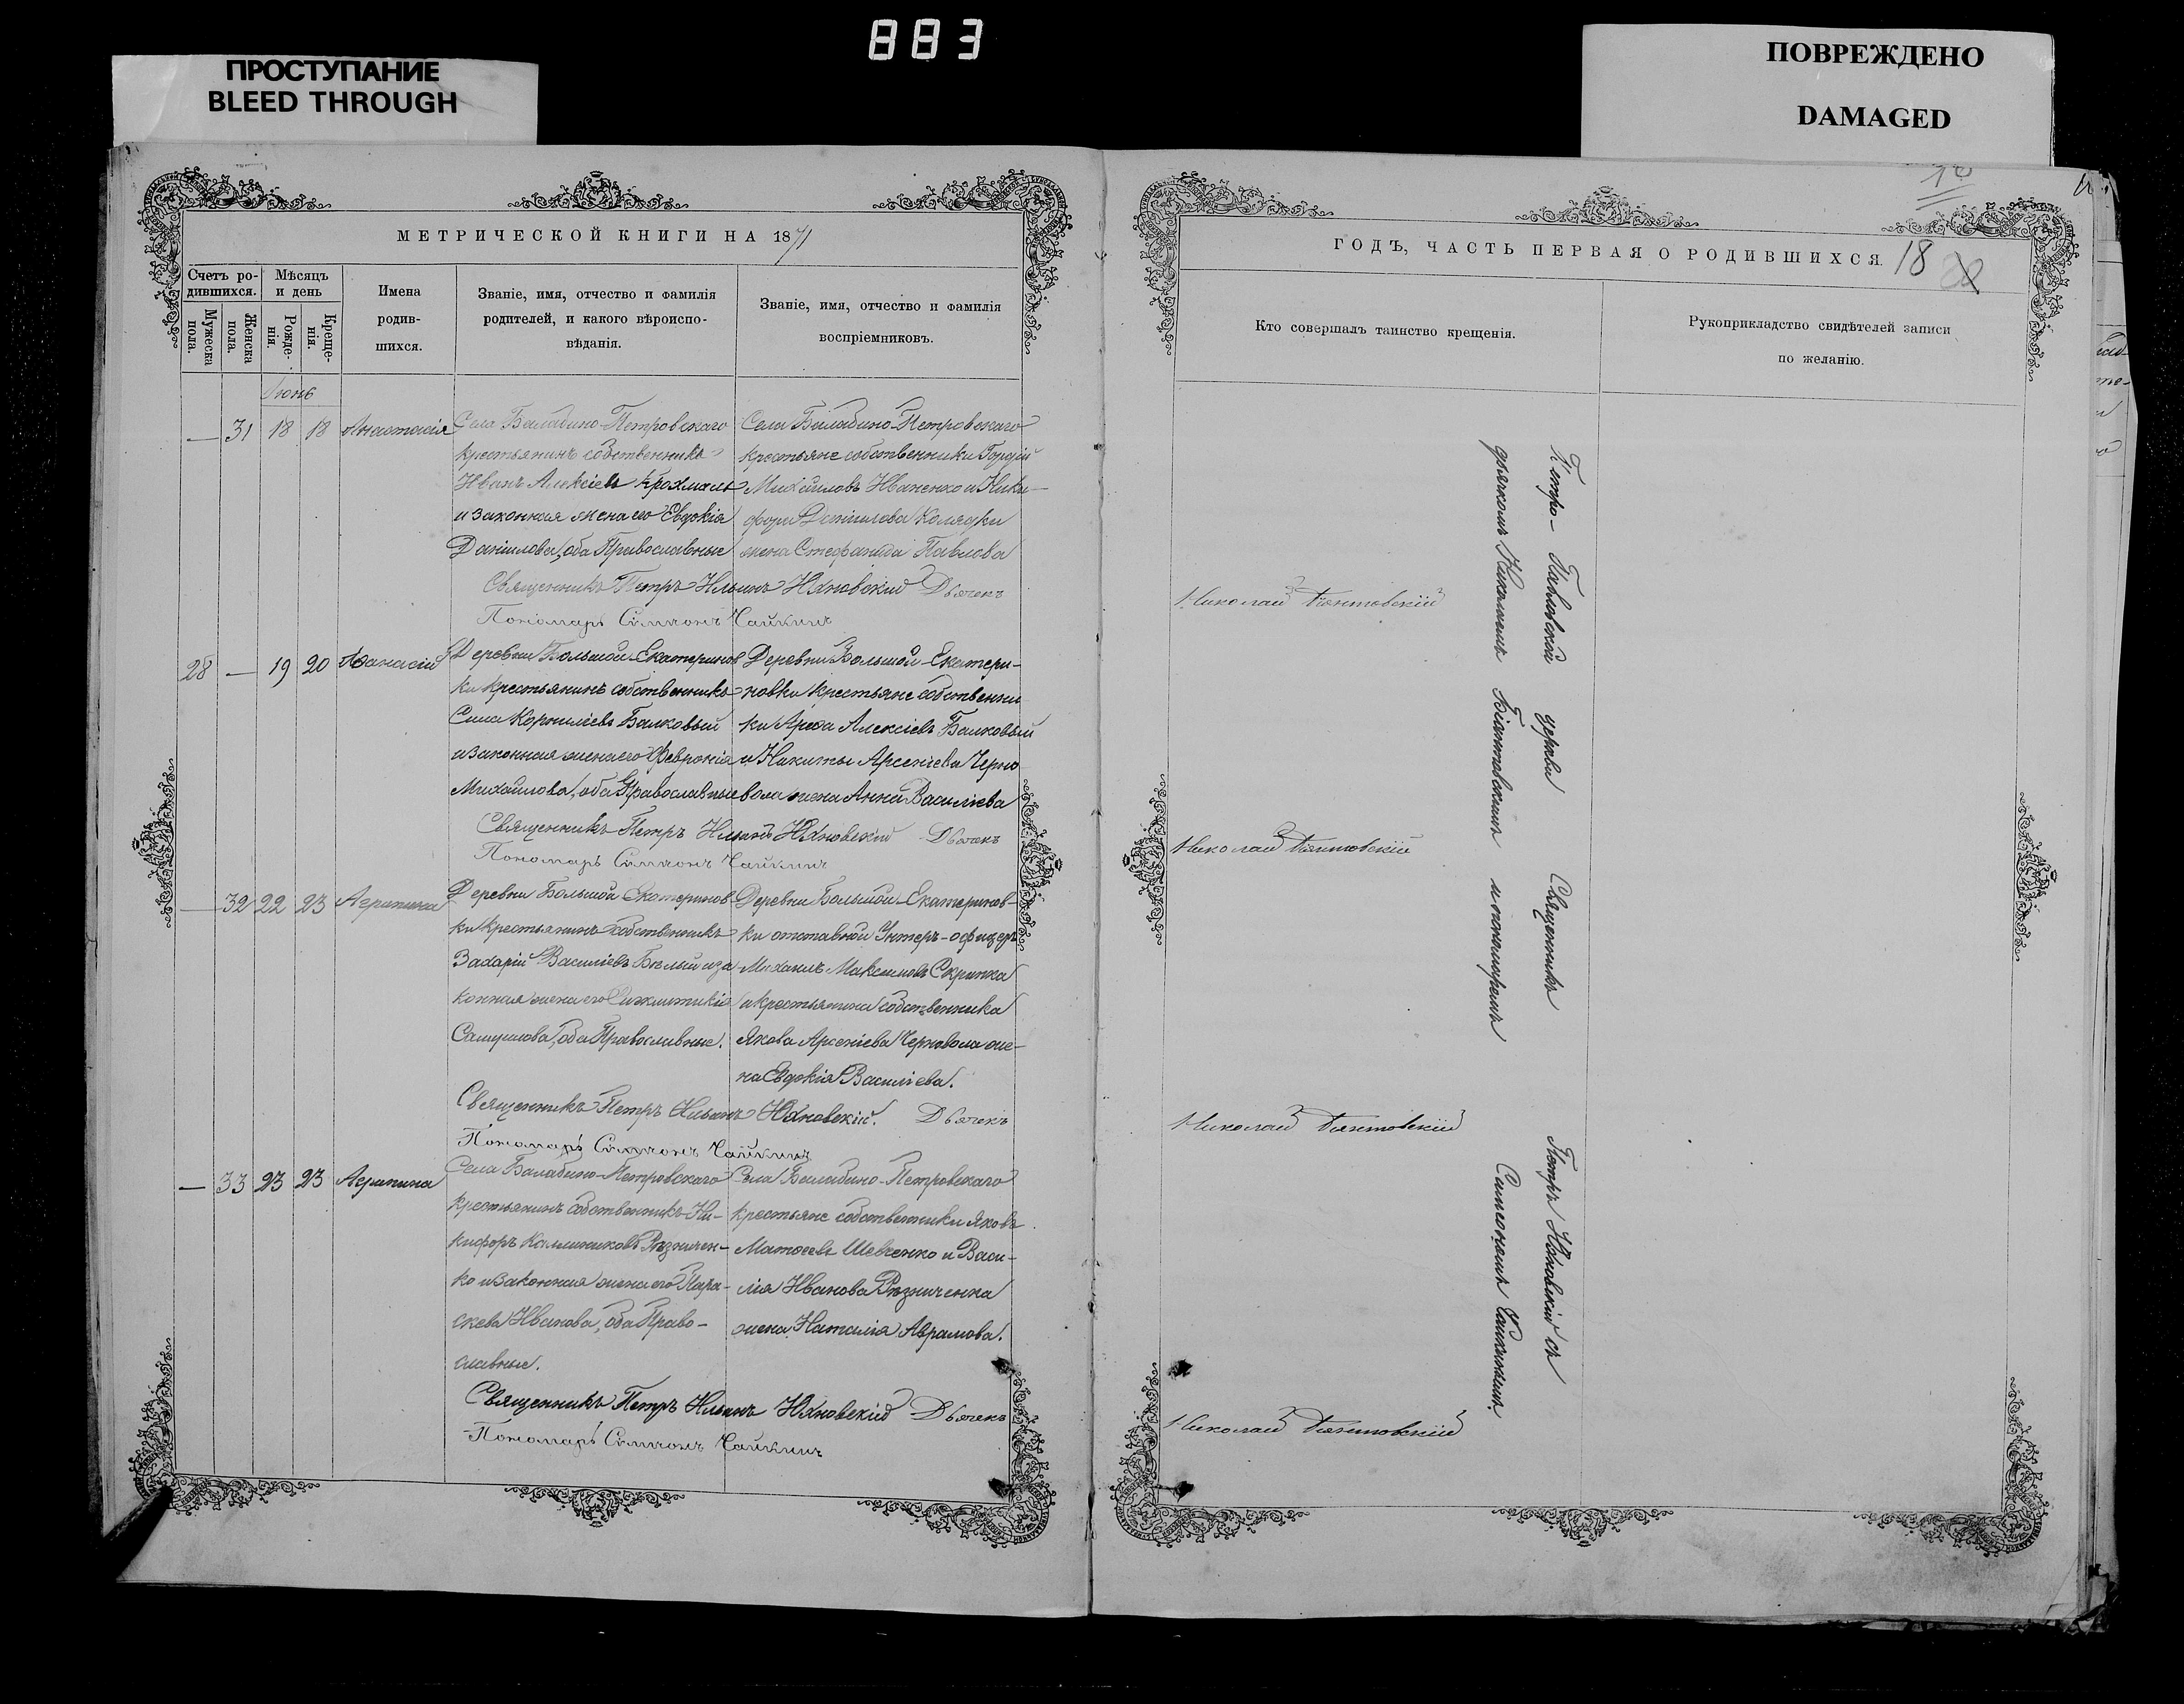 883
ПРОСТУПАНИЕ
BLEED THROUGH
ПОВРЕЖДЕНО
DAMAGED
МЕТРИЧЕСКОЙ КНИГИ НА 1871
Счетъ ро-
дившихся.
Мужеска
пола.
Женска
пола.
Мѣсяцъ
и день
Рожде-
нія.
Креще-
нія.
Имена
родив-
шихся.
Званіе, имя, отчество и фамилія
родителей, и какого вѣроиспо-
вѣданія.
Званіе, имя, отчество и фамилія
воспріемниковъ.
Іюнь
— 31 18 18 Анастасія
Села Балабино-Петровскаго
крестьянинъ собственникъ
Иванъ Алексіевъ Крохмаль
и законная жена его Евдокія
Даніилова, оба Православные
Села Балабино-Петровскаго
крестьяне собственники Гордій
Михайловъ Иваненко и Ники-
фора Даніилова Колядки
жена Стефанида Павлова
Священникъ Петръ Ильинъ Юхновскій Дьячекъ
Пономарь Симеонъ Чайкинъ
28 — 19 20 Аѳанасій
Деревни Большой Екатеринов
ки крестьянинъ собственникъ
Сила Корниліевъ Балковый
и законная жена его Февронія
Михайлова, оба Православные
Деревни Большой-Екатери-
новки крестьяне собственни
ки Арефа Алексіевъ Балковый
и Никиты Арсеніева Черно
вола жена Анна Василіева
Священникъ Петръ Ильинъ Юхновскій Дьячекъ
Пономарь Симеонъ Чайкинъ
— 32 22 23 Агрипина
Деревни Большой Екатеринов
ки крестьянинъ собственникъ
Захарій Василіевъ Бѣлый и за
конная жена его Синклитикія
Самуилова, оба Православные.
Деревни Большой-Екатеринов-
ки отставной Унтеръ-офицеръ
Михаилъ Максимовъ Скрипка
и крестьянина собственника
Якова Арсеніева Черновола же-
на Евдокія Василіева.
Священникъ Петръ Ильинъ Юхновскій. Дьячекъ
Пономарь Симеонъ Чайкинъ
— 33 23 23 Агрипина
Села Балабино-Петровскаго
крестьянинъ собственникъ Ни-
кифоръ Каллиниковъ Рѣзничен-
ко и законная жена его Пара-
скева Иванова, оба Право-
славные.
Села Балабино-Петровскаго
крестьяне собственники Яковъ
Матѳеевъ Шевченко и Васи-
лія Иванова Рѣзниченка
жена Наталія Аврамова.
Священникъ Петръ Ильинъ Юхновскій Дьячекъ
Пономарь Симеонъ Чайкинъ
ГОДЪ, ЧАСТЬ ПЕРВАЯ О РОДИВШИХСЯ.
18
Кто совершалъ таинство крещенія.
Рукоприкладство свидѣтелей записи
по желанію.
Петро-Павловской церкви Священникъ Петръ Юхновскій съ
дьячкомъ Николаемъ Біянтовскимъ и пономаремъ Симеономъ Чайкинымъ.
Николай Біянтовскій
Николай Біянтовскій
Николай Біянтовскій
Николай Біянтовскій